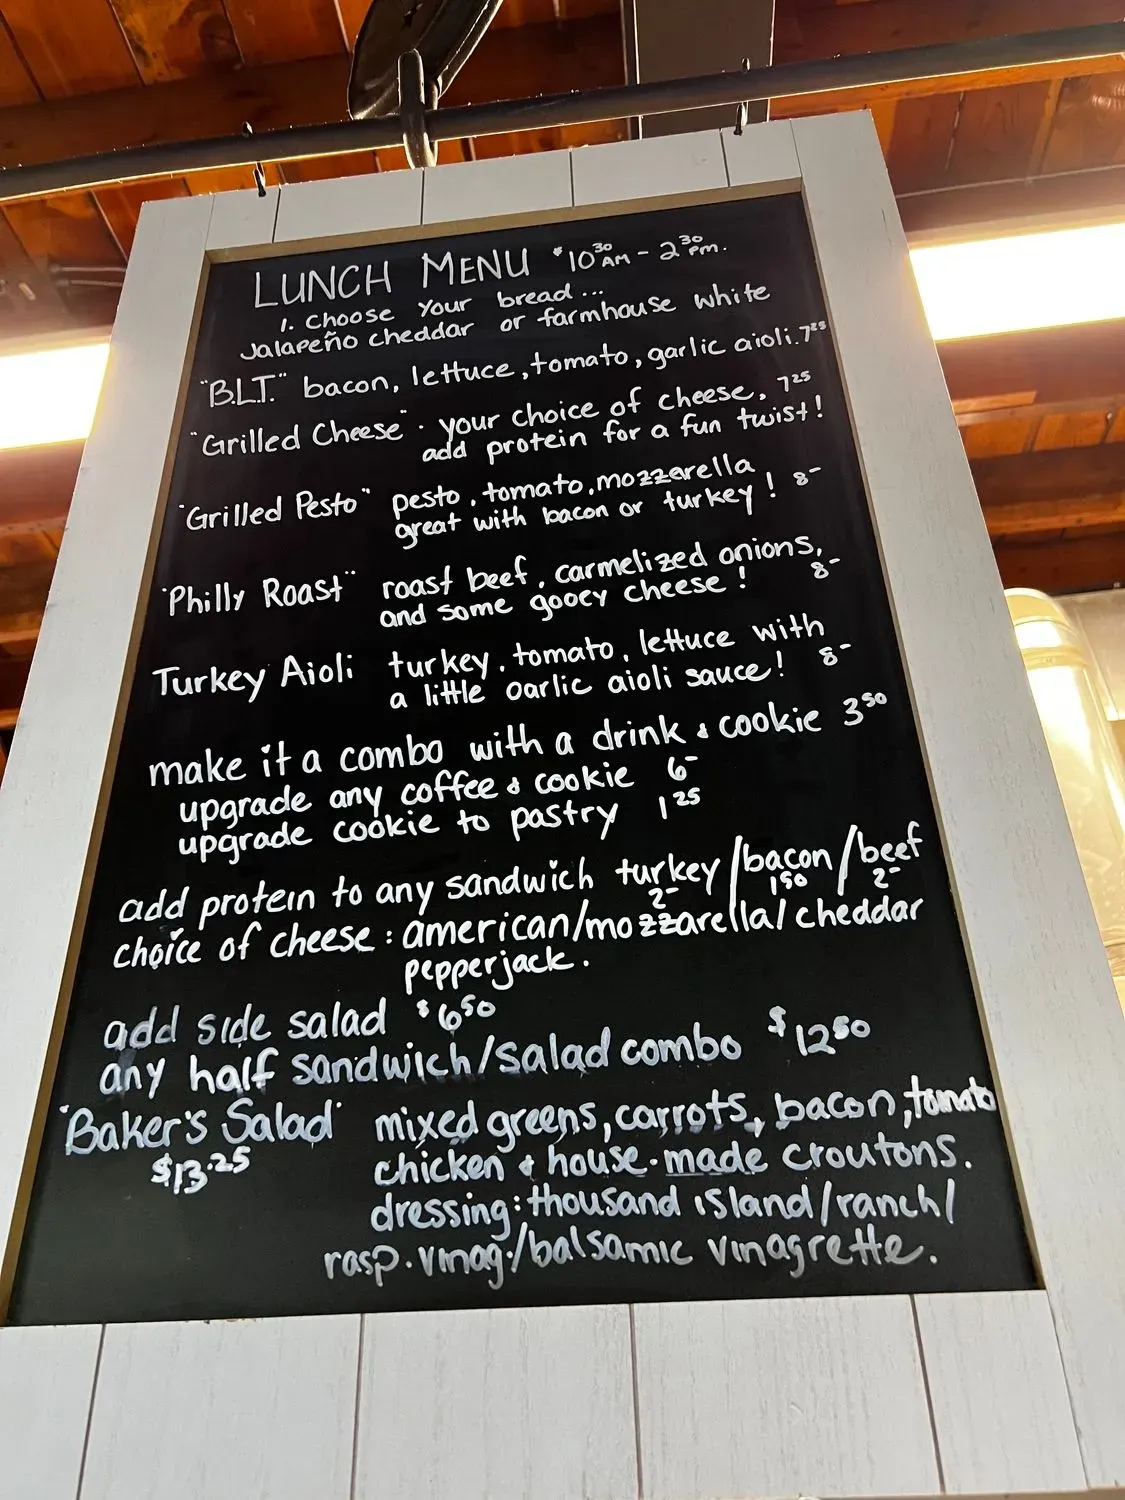 LUNCH MENU * 10³⁰ AM - 2³⁰ pm.
1. Choose Your bread...
Jalapeño cheddar or farmhouse white
"B.L.T." bacon, lettuce, tomato, garlic aioli. 7²⁵
"Grilled Cheese" · your choice of cheese, 7²⁵
add protein for a fun twist!
"Grilled Pesto" pesto, tomato, mozzarella
great with bacon or turkey! 8-
"Philly Roast" roast beef, carmelized onions,
and some gooey cheese! 8-
Turkey Aioli turkey, tomato, lettuce with
a little oarlic aioli sauce! 8-
make it a combo with a drink & cookie 3⁵⁰
upgrade any coffee & cookie 6-
upgrade cookie to pastry 1²⁵
add protein to any sandwich turkey/bacon/beef
2- 1⁵⁰ 2-
choice of cheese: american/mozzarella/cheddar
pepperjack.
add side salad $6⁵⁰
any half sandwich/salad combo $12⁵⁰
"Baker's Salad" mixed greens, carrots, bacon, tomato
$13.25 chicken & house-made croutons.
dressing: thousand island/ranch/
rasp. vinag./balsamic vinagrette.